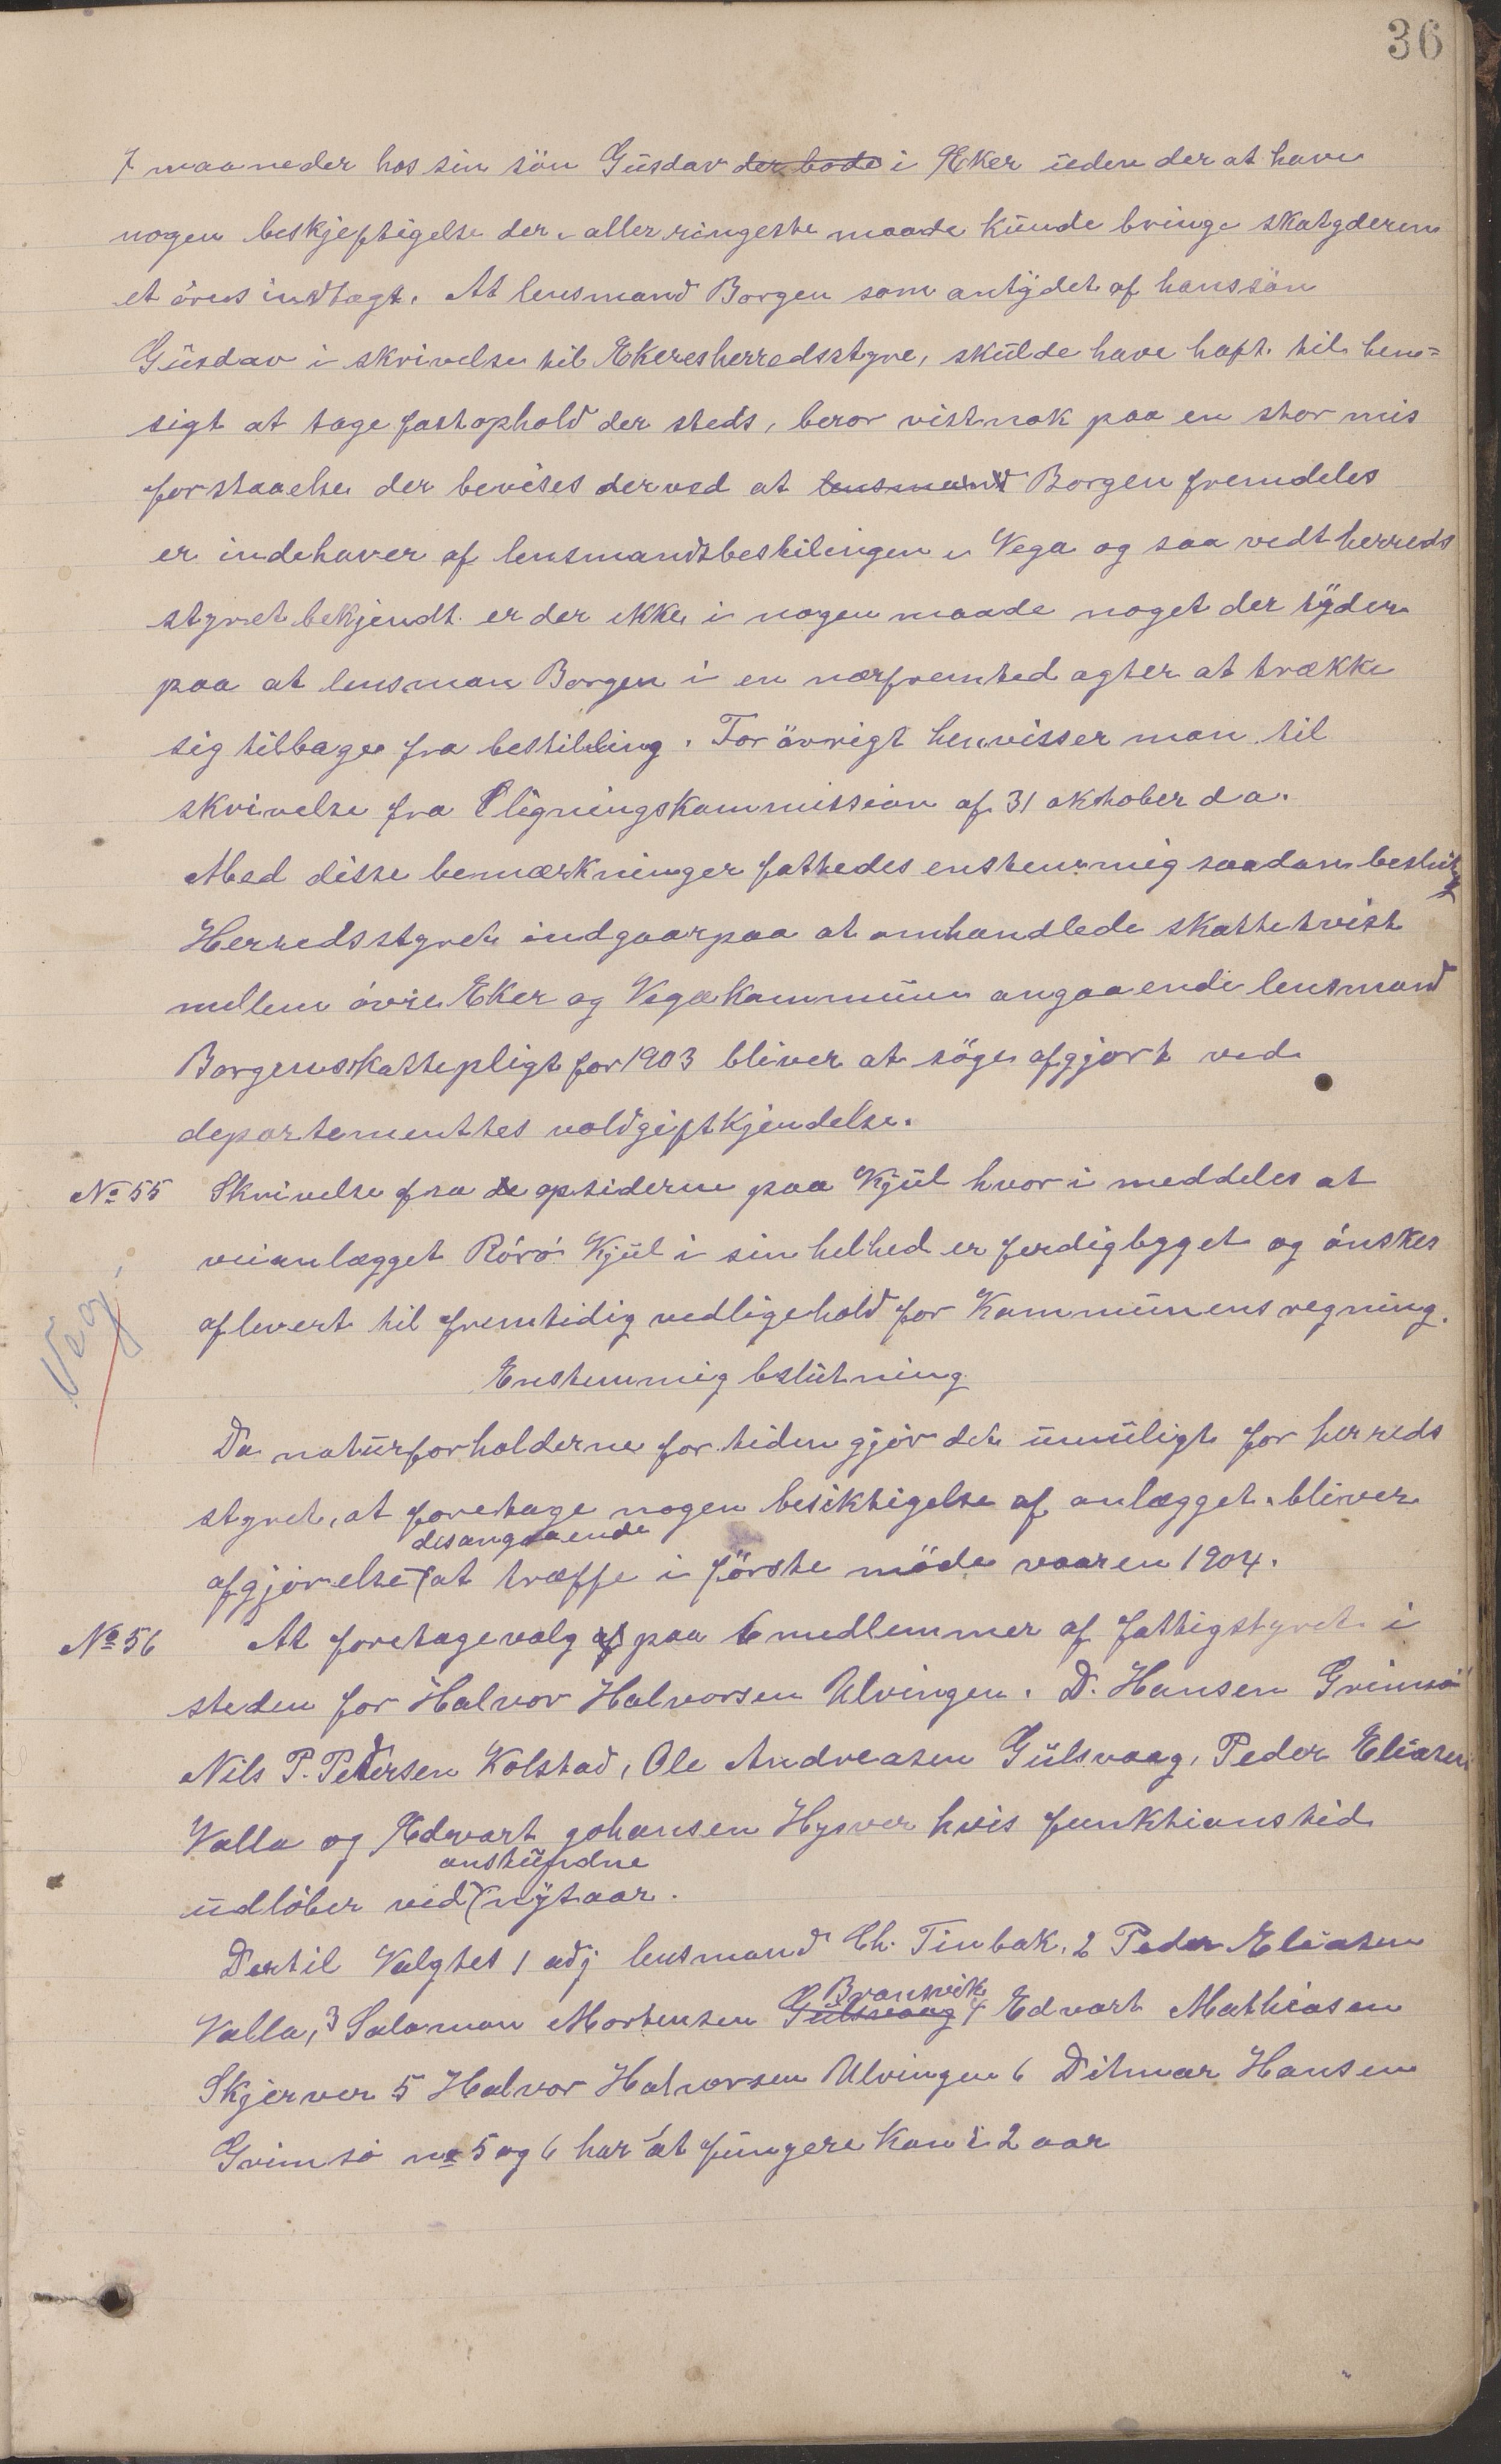 36
7 maaneder hos sin sön Gusdav der bode i Eker uden der at have
nogen beskjeftigelse der i aller ringeste maade kunde bringe skatyderen
et öres indtægt. At lensmand Borgen som antydet af hans sön
Gusdav i skrivelse til Ekeresherredsstyre, skulde have haft til hen=
sigt at tage fast ophold der steds, beror vistnok paa en stor mis
forstaaelse der bevises derved at lensmand Borgen fremdeles
er indehaver af lensmandsbestilingen i Vega og saa vedt herreds
styret bekjendt er der ikke i nogen maade noget der tyder
paa at lensman Borgen i en nærfremted agter at trække
sig tilbage fra bestilling. For övrigt henvisser man til
skrivelse fra ligningskommission af 31 oktober d a.
Med disse bemærkninger fattedes enstemmig saadan beslut
Herredsstyret indgaar paa at omhandlede skattetvist
mellem övre Eker og Vega kommune angaaende lensmand
Borgens skattepligt for 1903 bliver at söge afgjort ved
departementtes voldgiftkjendelse.
No 55 Skrivelse fra de opsiderne paa Kjul hvor i meddeles at
veianlægget Rörö Kjul i sin helhed er ferdigbygget og önskes
Veg
aflevert til fremtidig vedligehold for Kommunens regning.
Enstemmig bslutning
Da naturforholderne for tiden gjör det umuligt for herreds
styret, at foretage nogen besiktigelse af anlægget bliver
desangaaende
afgjörelse at træffe i förste möde vaaren 1904.
No 56 At foretage valg af paa 6 medlemmer af fattigstyret i
steden for Halvor Halvorsen Ulvingen. D. Hansen Grimsö
Nils P. Pedersen Kolstad, Ole Andreasen Gulsvaag, Peder Eliasen
Valla og Edvart Johansen Hysver hvis funktionstid
anstundne
udlöber ved nytaar.
Dertil Valgtes 1 adj lensmand Ch. Tinbak, 2 Peder Eliasen
Brandvik
Valla, 3 Salamon Mortensen Gulsvaag 4 Edvart Mathiasen
Skjerver 5 Halvor Halvorsen Ulvingen 6 Ditmar Hansen
Grimsö no 5 og 6 har at fungere kun i 2 aar